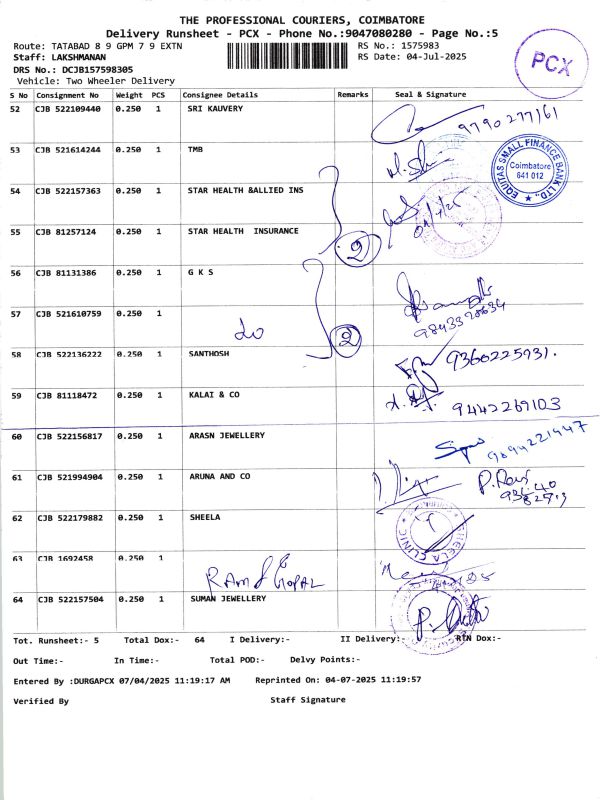 THE PROFESSIONAL COURIERS, COIMBATORE
Delivery Runsheet - PCX - Phone No.:9047080280 - Page No.:5
Route: TATABAD 8 9 GPM 7 9 EXTN RS No.: 1575983
Staff: LAKSHMANAN RS Date: 04-Jul-2025
DRS No.: DCJB157598305
Vehicle: Two Wheeler Delivery
PCX
S No Consignment No Weight PCS Consignee Details Remarks Seal & Signature
52 CJB 522109440 0.250 1 SRI KAUVERY 9790277161
53 CJB 521614244 0.250 1 TMB
EQUITAS SMALL FINANCE BANK LTD. Coimbatore 641 012
54 CJB 522157363 0.250 1 STAR HEALTH &ALLIED INS
55 CJB 81257124 0.250 1 STAR HEALTH INSURANCE 2
56 CJB 81131386 0.250 1 G K S
57 CJB 521610759 0.250 1 do 2
58 CJB 522136222 0.250 1 SANTHOSH 9360225931.
59 CJB 81118472 0.250 1 KALAI & CO 9442269103
60 CJB 522156817 0.250 1 ARASN JEWELLERY 9894221447
61 CJB 521994904 0.250 1 ARUNA AND CO
62 CJB 522179882 0.250 1 SHEELA
SHEELA CLINIC
63 CJB 1692458 0.250 1 RAM GOPAL
64 CJB 522157504 0.250 1 SUMAN JEWELLERY
Tot. Runsheet:- 5 Total Dox:- 64 I Delivery:- II Delivery:- RTN Dox:-
Out Time:- In Time:- Total POD:- Delvy Points:-
Entered By :DURGAPCX 07/04/2025 11:19:17 AM Reprinted On: 04-07-2025 11:19:57
Verified By Staff Signature